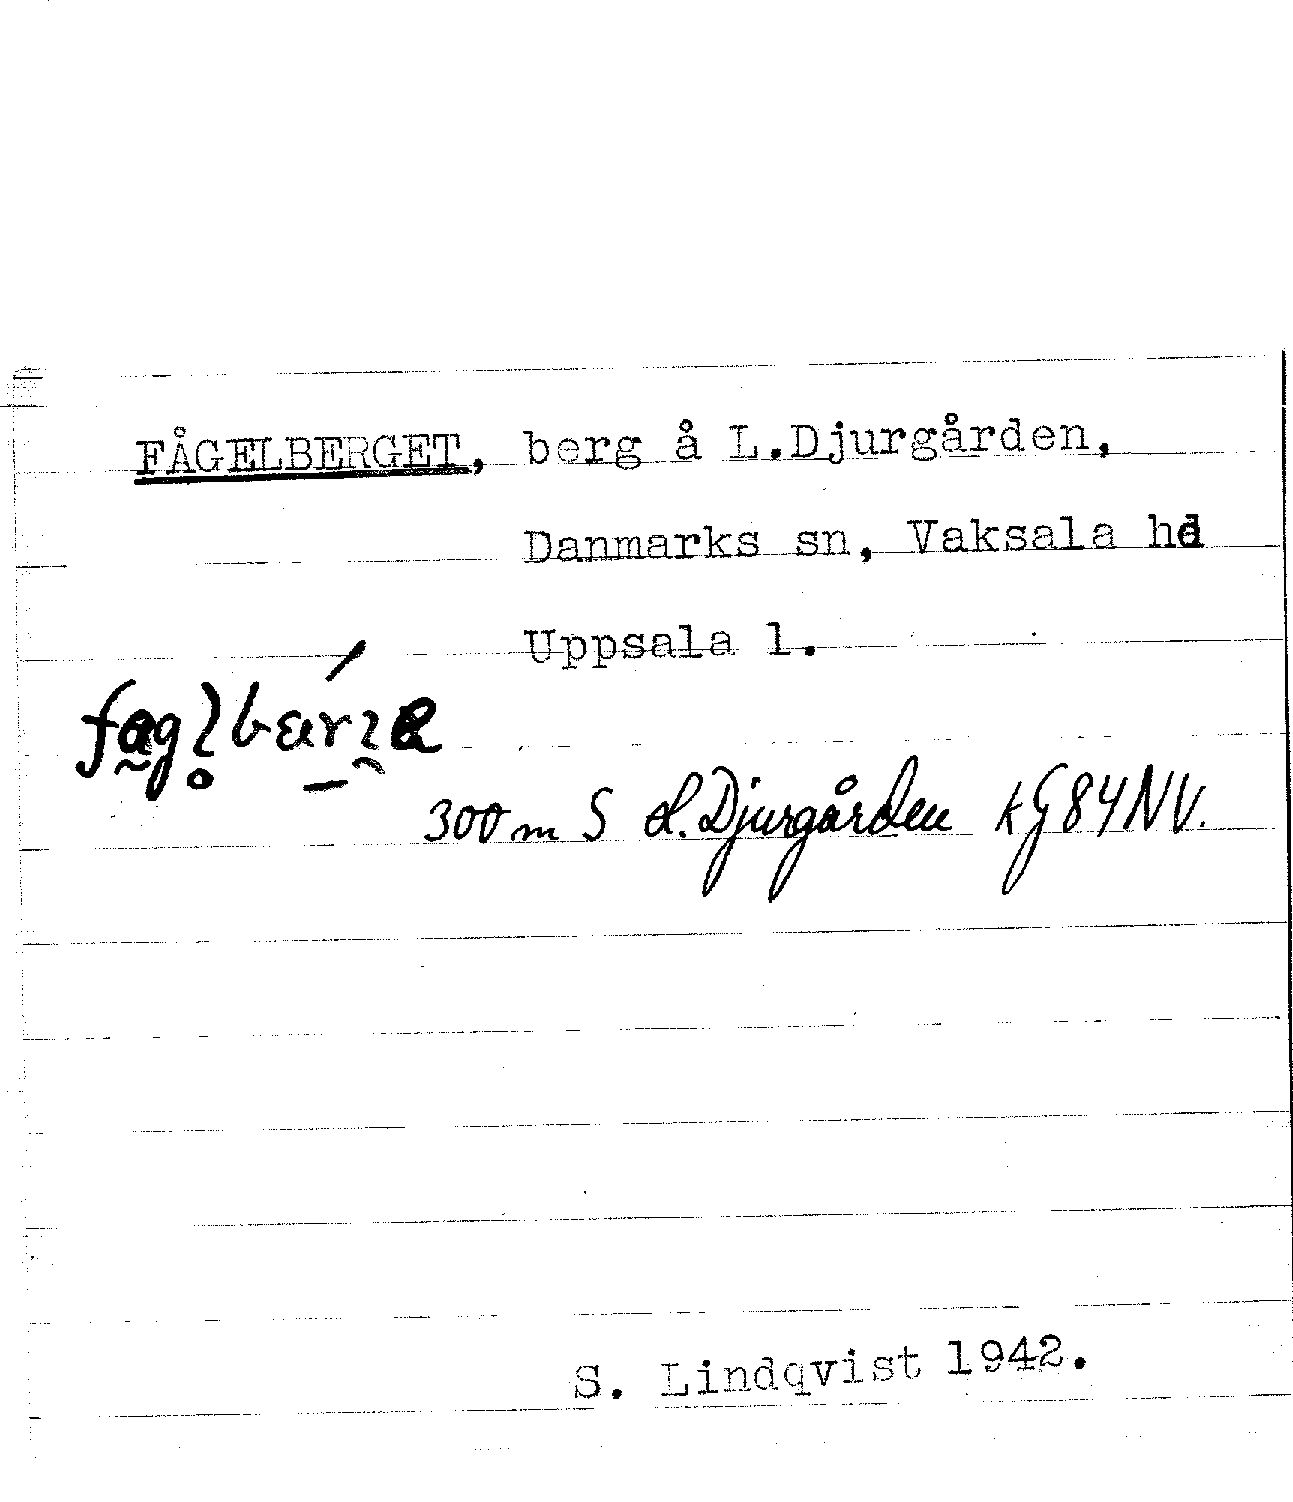 FÅGELBERGET, berg å L.Djurgården,
Danmarks sn, Vaksala hd
Uppsala l.
300 m S L.Djurgården kG84NV.
S. Lindqvist 1942.